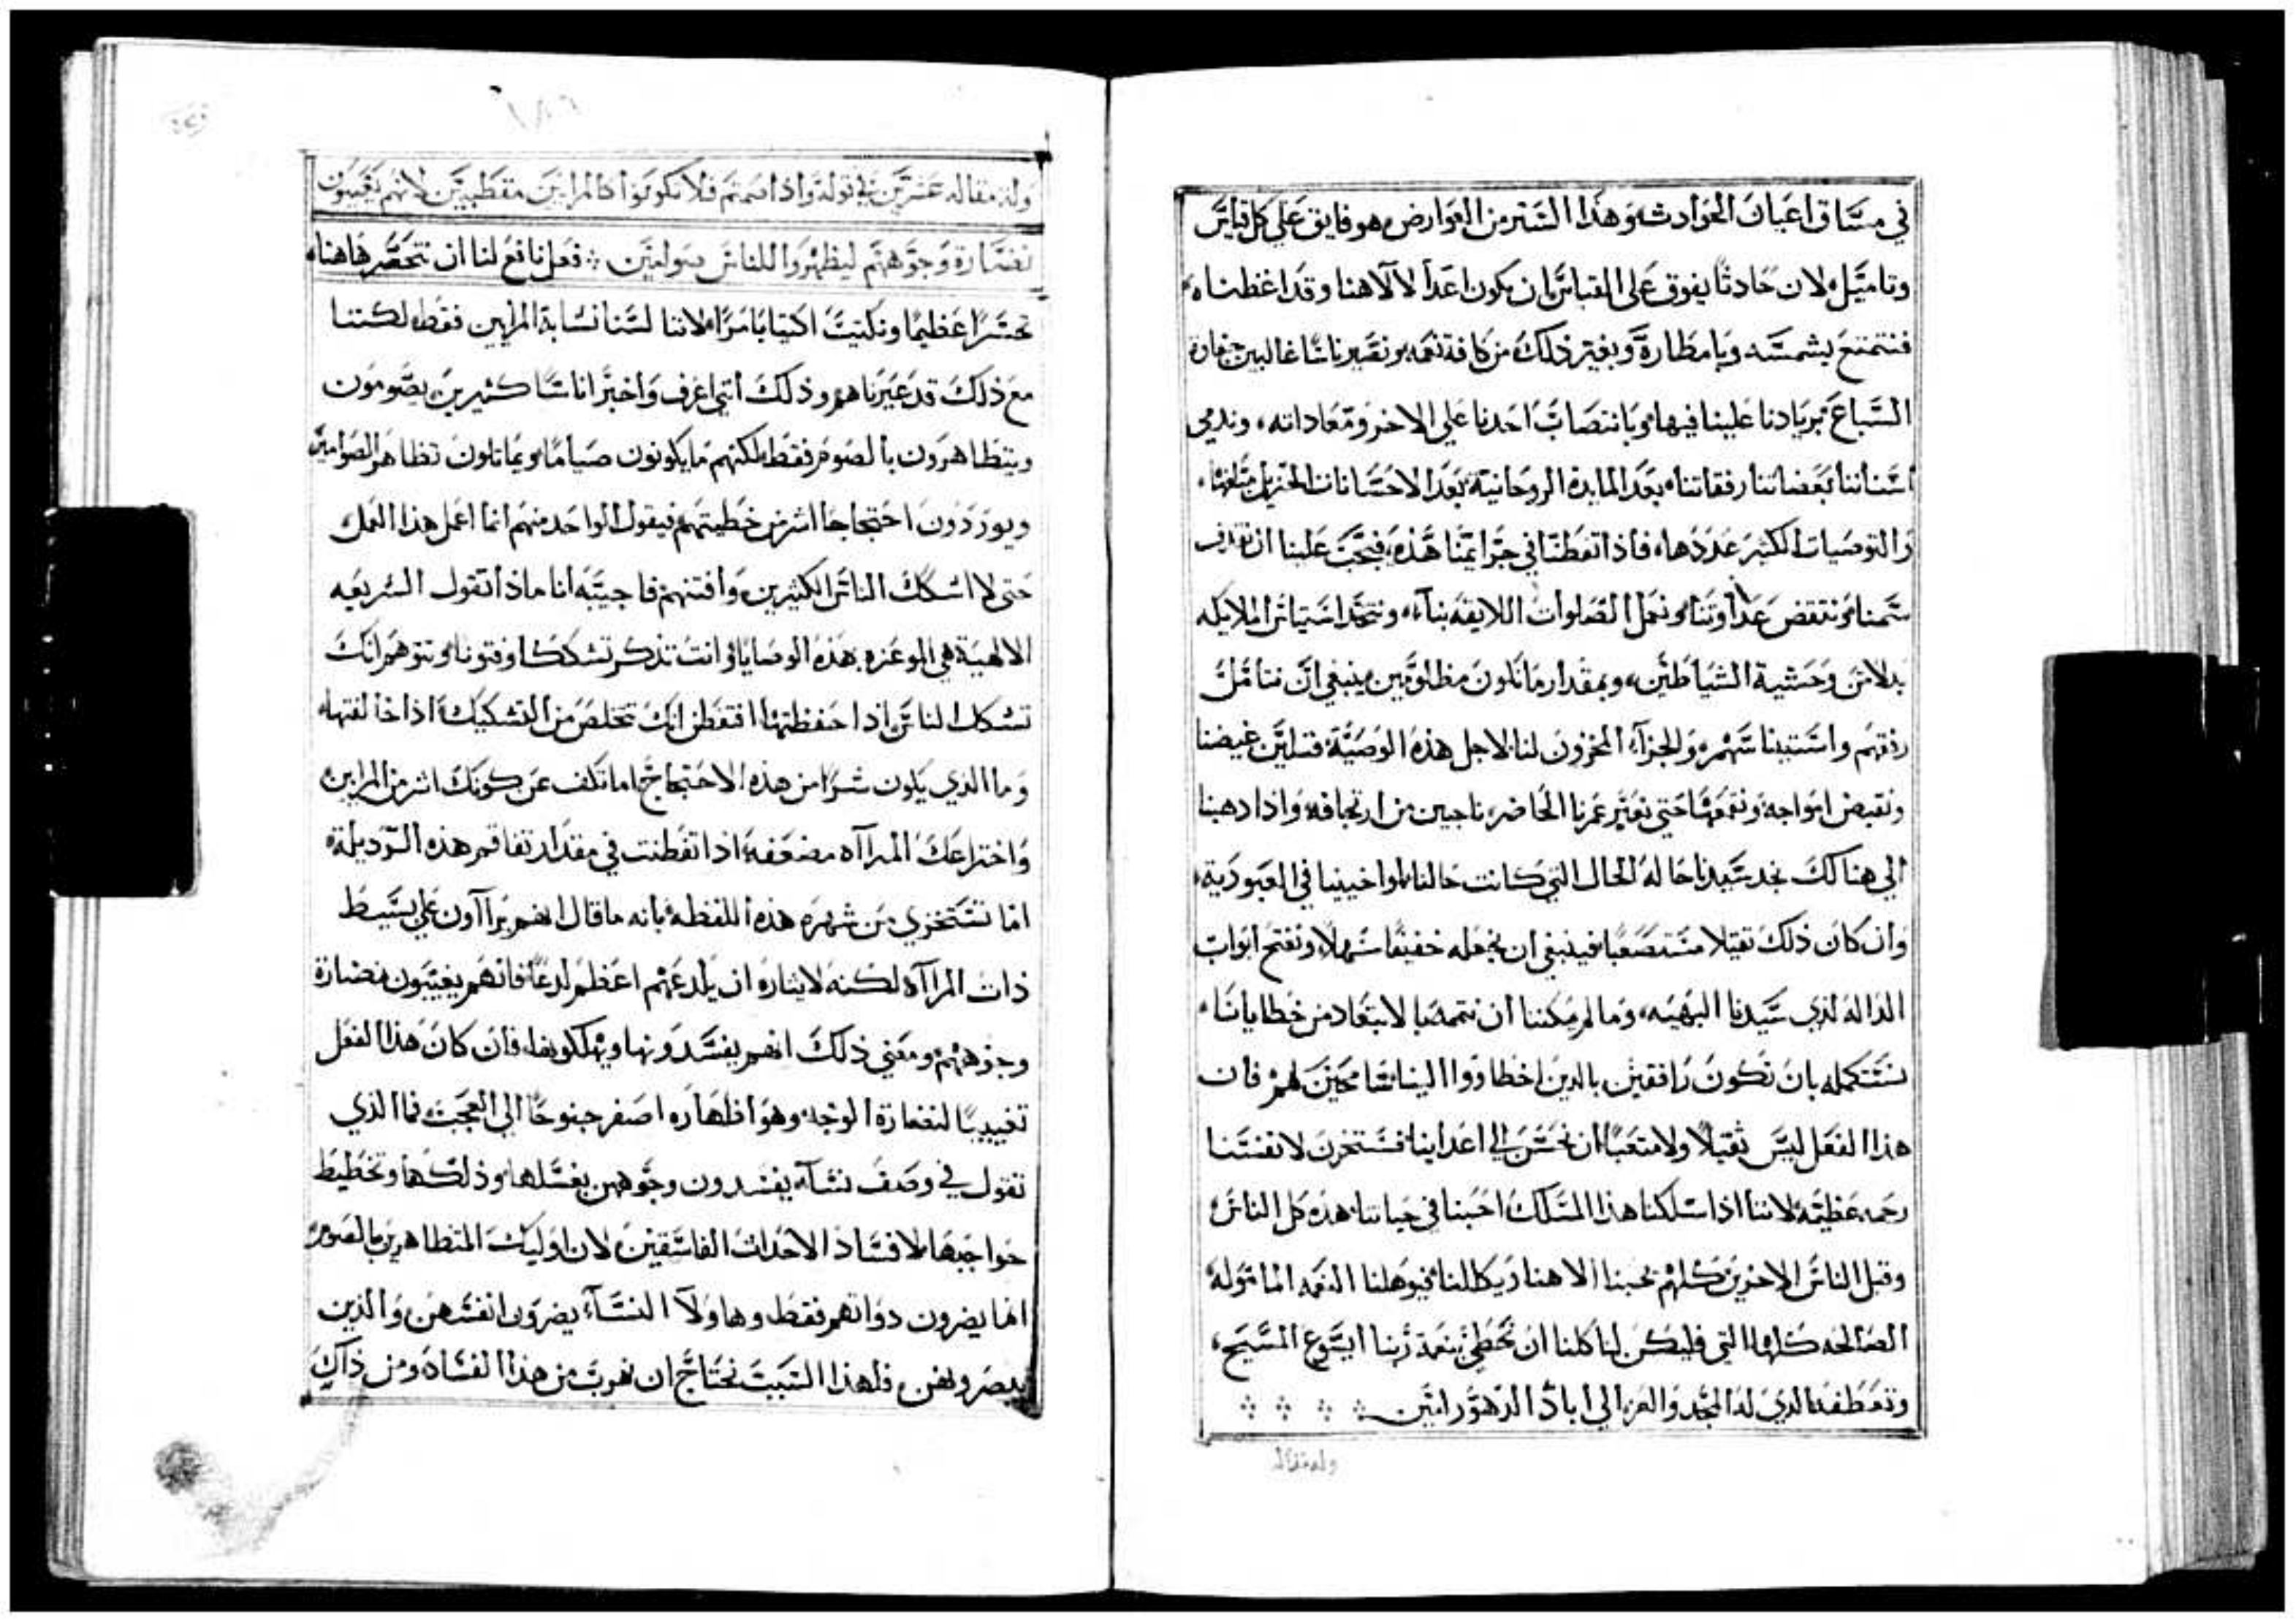 في مساق اعيان الحوادث وهذا الستر من العوارض هو فايق على كل قياس
وتاميل لان حادثا يفوق على القياس ان يكون اعدا لالاهنا وقد اغظناه
فنتمتع بشمسه وبامطاره وبغير ذلك من كافة نعمه ونصير ناسا غالبين ضارة
السباع بزيادنا علينا فيها وبانتصاب احدنا على الاخر ومعاداته وندمي
اسناننا بعضاتنا رفقاتنا بعد المايدة الروحانية بعد الاحسانات الجزيل مبلغها
والتوصيات الكثير عددها فاذا تفطنا في جرايمنا هذه فيجب علينا ان نقذف
سمنا وننتقض عداوتنا ونعمل الصلوات اللايقه بنا ونتخذ استيناس الملايكه
بدلا من وحشية الشياطين وبمقدار ما نكون مظلومين ينبغي ان نتامل
والجزآ المخزون لنا لاجل هذه الوصية فتلين غيضنا
ونقبض امواجه ونقمعها حتى نعبر عمرنا الحاضر ناجين من ارتجافه واذا ذهبنا
الي هنالك نجد سيدنا حاله الحال التي كانت حالنا لمواخيينا في العبودية
وان كان ذلك ثقيلا مستصعبا فينبغي ان نجعله خفيفا سهلا ونفتح ابواب
الداله لدي سيدنا البهيه وما لم يمكننا ان نتممه بالابتعاد من خطايانا
نستكمله بان نكون رافقين بالدين اخطاووا الينا سامحين لهم فان
هذا الفعل ليس ثقيلا ولا متعبا ان نحسن الي اعداينا فنستخزن لانفسنا
رحمه عظيمه لاننا اذا سلكنا هذا المسلك احبنا في حياتنا هذه كل الناس
وقبل الناس الاخرين كلهم يحبنا الاهنا ويكللنا فيوهلنا النعمه المامولة
الصالحه كلها التي فليكن لنا كلنا ان نحظي بنعمة ربنا ايسوع المسيح
وتعطفه الذي له المجد والعز الي اباد الدهور امين
وله مقاله
وله مقاله عشرين في قوله واذا صمتم فلا تكونوا كالمرايين مقطبين لانهم يغيبون
نضارة وجوههم ليظهروا للناس صوامين فعل نافع لنا ان نتحسر هاهنا
تحسرا عظيما ونكتيب اكتيابا مرا لاننا لسنا نشابه المرايين فقط لكننا
مع ذلك قد عبرناهم وذلك أنني اعرف واخبر اناسا كثيرين يصومون
ويتظاهرون بالصوم فقط لكنهم ما يكونون صياما ويماثلون تظاهر الصوامين
ويوردون احتجاجا اشر من خطيتهم فيقول الواحد منهم انما اعمل هذا العمل
حتى لا اشكك الناس الكثيرين وافتنهم فاجيبه انا ماذا تقول الشريعه
الالهية هي الموعزه بهذه الوصايا وانت تذكر تشككا وفتونا وتتوهم انك
تشكك الناس اذا حفظتها افتظن انك تخلص من التشكيك اذا خالفتها
وما الذي يكون شرا من هذه الاحتجاج اما تكف عن كونك اشر من المرايين
واختراعك المرآآه مضعفه اذا تفطنت في مقدار تفاقم هذه الرديلة
اما تستخزي من شهره هذه اللفظه بانه ما قال انهم يرآآون على بسيط
ذات المرآآه لكنه لايثاره ان يلدعهم اعظم لدعا فانهم يغيبون نضارة
وجوههم ومعني ذلك انهم يفسدونها ويهلكونها فان كان هذا الفعل
تغييبا لنضارة الوجه وهو اظهاره اصفر جنوحا الي العجب فما الذي
تقول في وصف نسآء يفسدون وجوههن بغسلها وذلكها وتخطيط
حواجبها لافساد الاحداث الفاسقين لان اوليك المتظاهرين بالصوم
انما يضرون دواتهم فقط وهاولآ النسآء يضرون انفسهن والذين
يبصرونهن فلهذا السبب نحتاج ان نهرب من هذا الفساد ومن ذاك